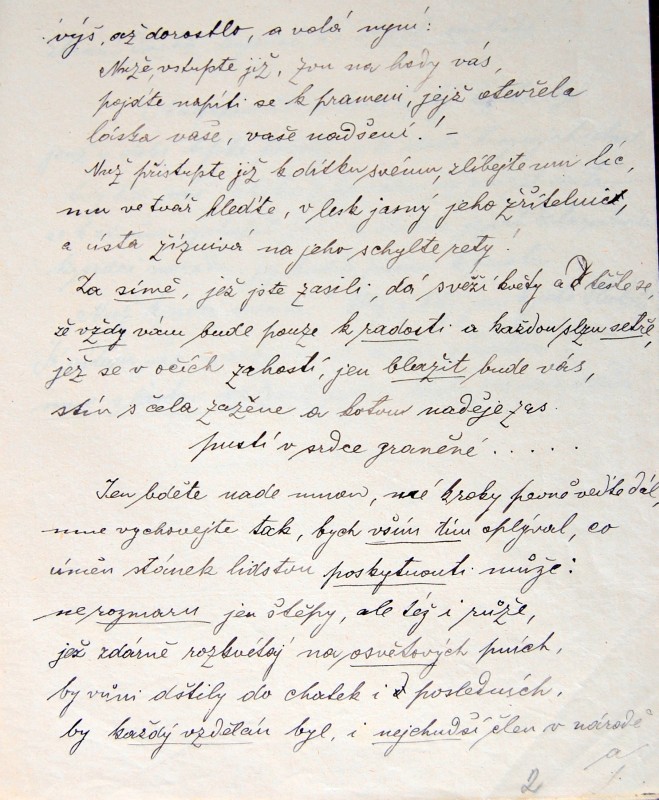 výš, až dorostlo, a volá nyní:
Nuže, vstupte již, zvu na hody vás,
pojďte napíti se k prameni, jejž otevřela
láska vaše, vaše nadšení! –
Nuž přistupte již k dítku svému, zlíbejte mu líc,
mu ve tvář hleďte, v lesk jasný jeho zřítelnic,
a ústa žíznivá na jeho schylte rety!
Za símě, jež jste zasili, dá svěží květy a těšte se,
že vždy vám bude pouze k radosti a každou slzu setře,
jéž se v očích zahostí, jen blažit bude vás,
stín s čela zažene a kotvu naděje zas
pustí v srdce graněné . . . . .
Jen bděte nade mnou, mé kroky pevně veďte dál,
mne vychovejte tak, bych vším tím oplýval, co
umění stánek lidstvu poskytnouti může:
ne rozmaru jen štěpy, ale též i růže,
jež zdárně rozkvétaj na osvětových pních,
by vůni dštily do chatek i posledních,
by každý vzdělán byl, i nejchudší člen v národě
a
2